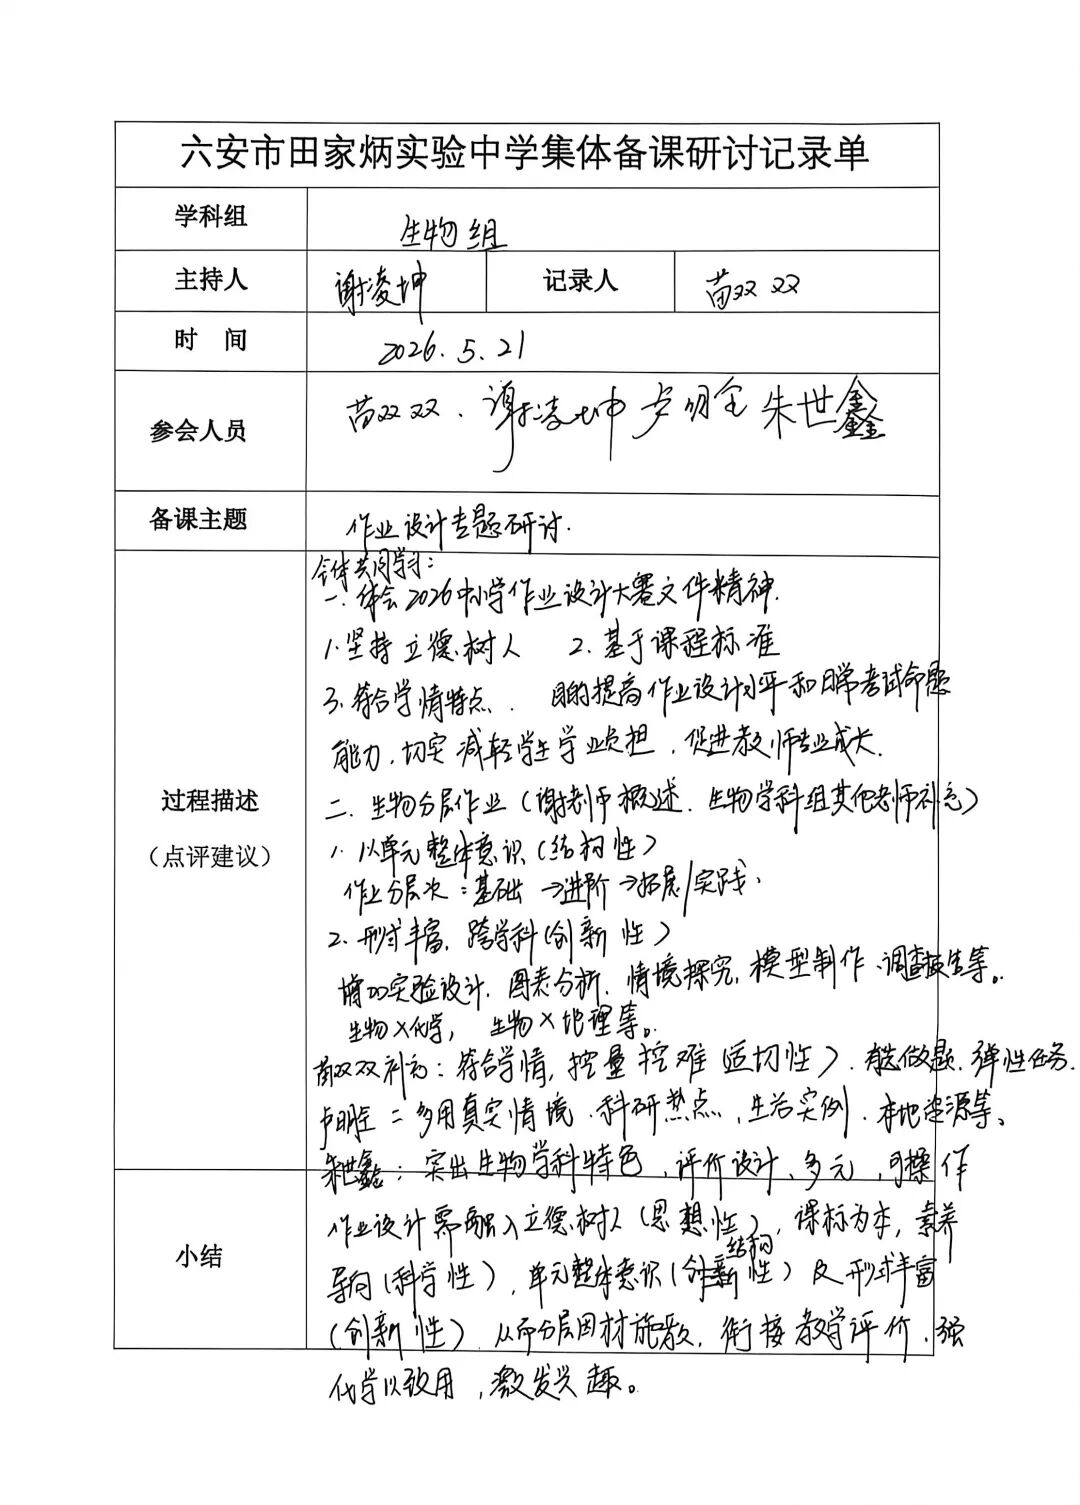 六安市田家炳实验中学集体备课研讨记录单
学科组 生物组
主持人 谢凌坤 记录人 苗双双
时 间 2026.5.21
参会人员 苗双双、谢凌坤 卢明全 朱世鑫
备课主题 作业设计专题研讨.
全体共同学习:
一.体会2026中小学作业设计大赛文件精神.
1.坚持立德树人 2.基于课程标准
3.符合学情特点、 目的提高作业设计水平和日常考试命题
能力,切实减轻学生学业负担,促进教师专业成长.
过程描述
(点评建议)
二.生物分层作业(谢老师概述.生物学科组其他老师补充)
1.以单元整体意识(结构性)
作业分层次:基础→进阶→拓展/实践.
2.形式丰富,跨学科(创新性)
增加实验设计.图表分析.情境探究,模型制作、调查报告等。
生物×化学, 生物×地理等。
苗双双补充:符合学情,控量控难 适切性).有选做题.弹性任务.
卢明全:多用真实情境.科研热点、生活实例.本地资源等、
朱世鑫:突出生物学科特色,评价设计、多元,可操作
小结
作业设计需融入立德树人(思想性),课标为本,素养
导向(科学性),单元整体意识(创新结构性)及形式丰富
(创新性).从而分层因材施教,衔接教学评价.强
化学以致用,激发兴趣。